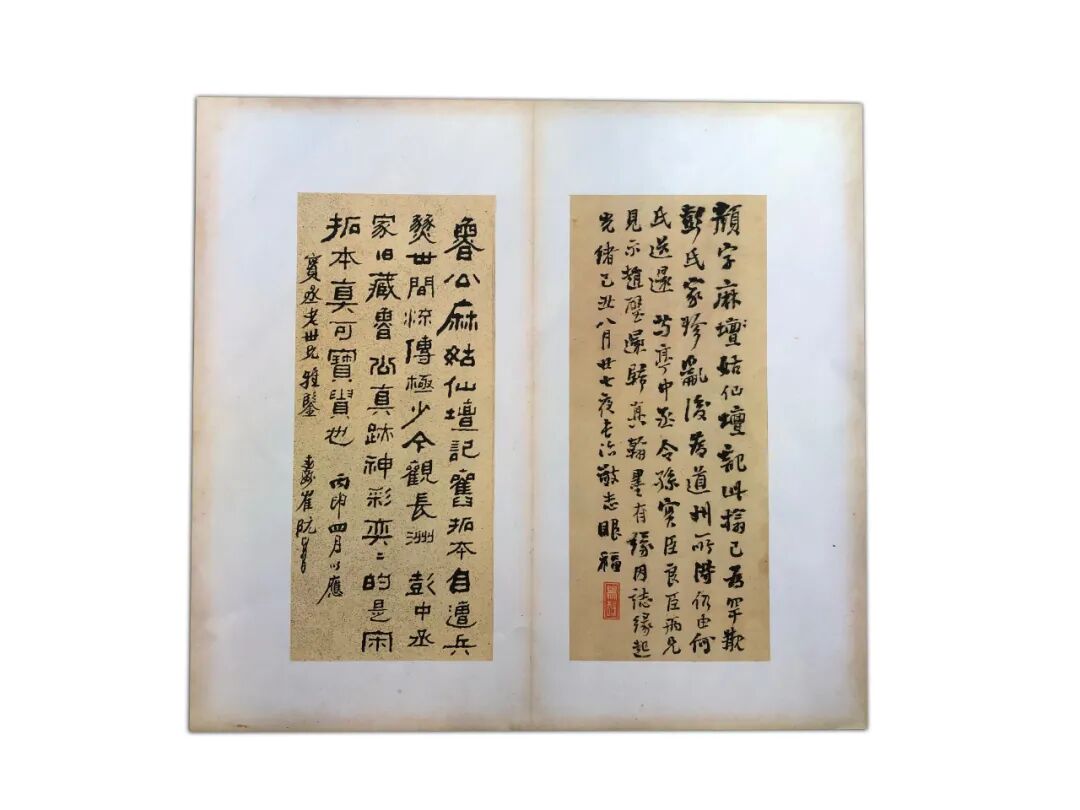 顔字麻壇姑仙壇記此搨已爲罕覯
彭氏家珍亂後爲道州所得仍由何
氏送還芍亭中丞令孫實臣良臣兩兄
見示趙璧還歸真翰墨有緣因誌緣起
光緒己丑八月廿七夜長洽敬志眼福
魯公麻姑仙壇記舊拓本自遭兵
燹世間流傳極少今觀長洲彭中丞
家旧藏魯公真跡神彩奕〻的是宋
拓本真可寶貴也
丙卯四月以應
寶丞老世兄雅鑒
崔阮